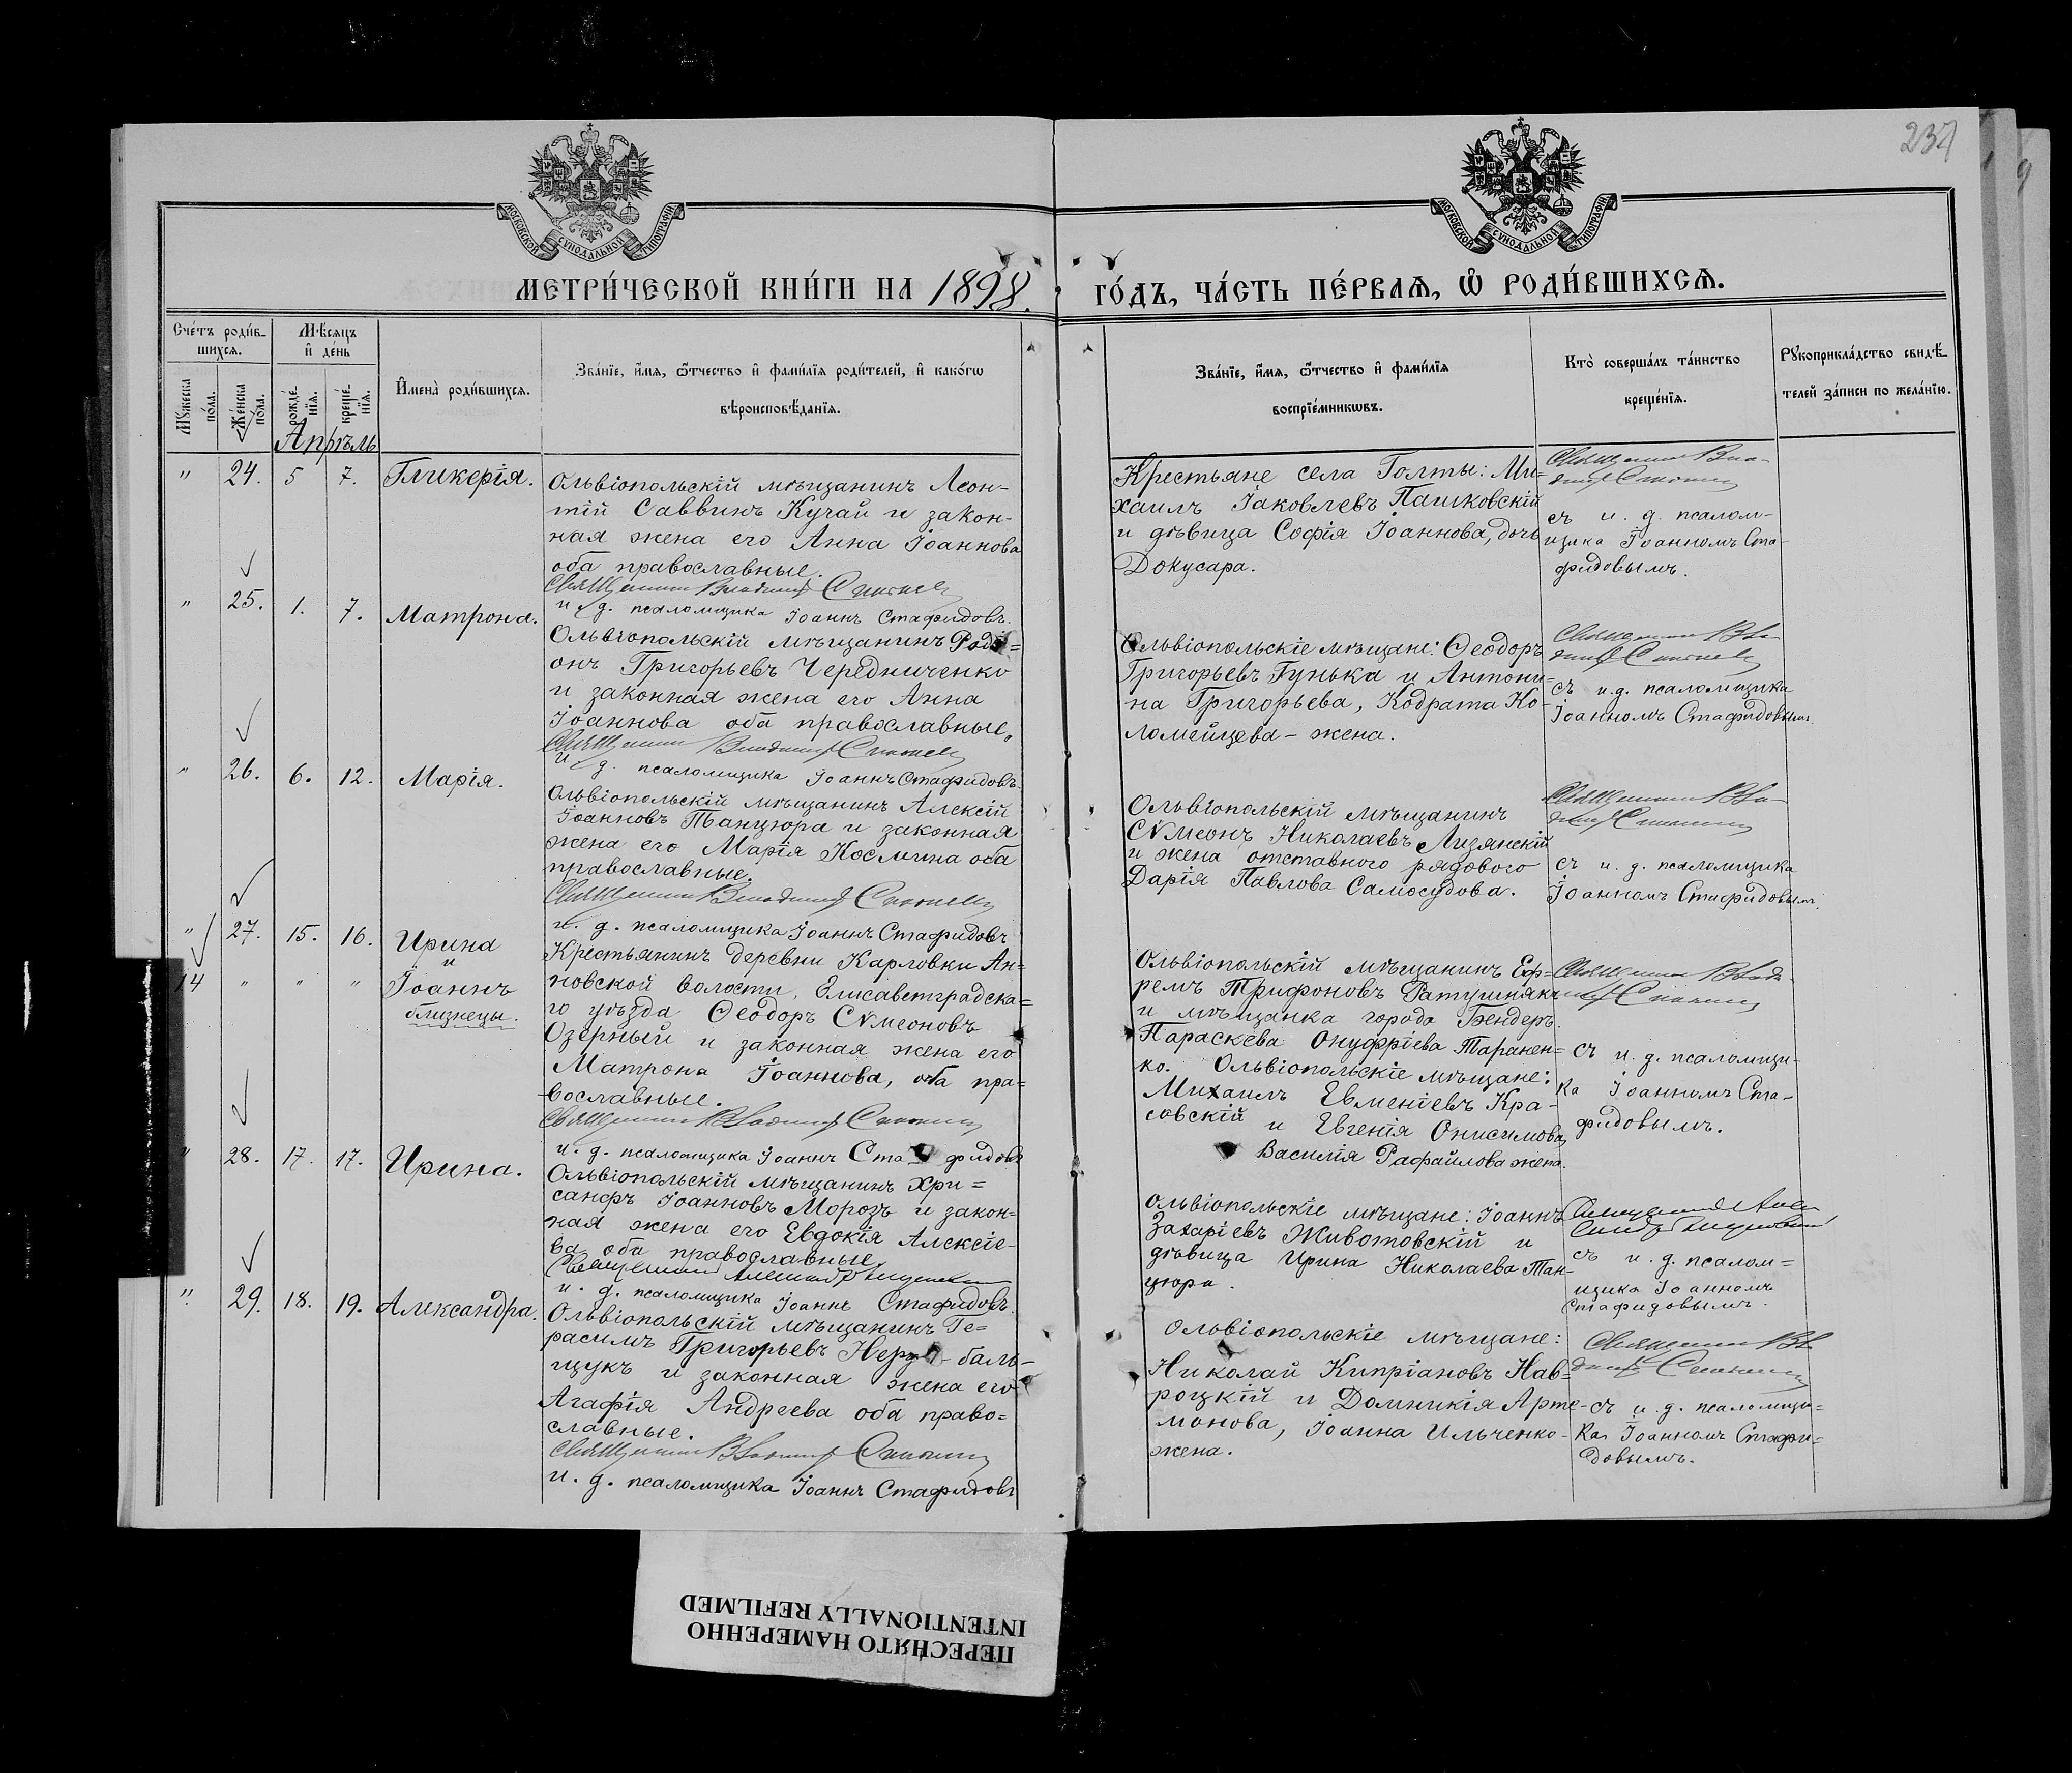 237
МОСКОВСКОЙ СѴНОДАЛЬНОЙ ТИПОГРАФІИ
МОСКОВСКОЙ СѴНОДАЛЬНОЙ ТИПОГРАФІИ
МЕТРИ́ЧЕСКОЙ КНИ́ГИ НА 1898. ГО́ДЪ, ЧА́СТЬ ПЕ́РВАѦ, Ѡ҆ РОДИ́ВШИХСѦ.
Сче́тъ роди́в-
шихсѧ.
Мꙋ́жеска по́ла.
Же́нска по́ла.
Мѣ́сѧцъ
и҆ де́нь
рожде́-нїѧ.
креще́-нїѧ.
И҆мена̀ роди́вшихсѧ.
Зва́нїе, и҆́мѧ, ѻ҆́тчество и҆ фами́лїѧ роди́телей, и҆ како́гѡ
вѣроисповѣ́данїѧ.
Зва́нїе, и҆́мѧ, ѻ҆́тчество и҆ фами́лїѧ
воспрїе́мникѡвъ.
Кто̀ соверша́лъ та́инство
креще́нїѧ.
Рꙋкоприкла́дство свидѣ́-
телей за́писи по жела́нїю.
Апрѣль
" 24. 5 7. Гликерія.
Ольвіопольскій мѣщанинъ Леон-
тій Саввинъ Кучай и закон-
ная жена его Анна Іоаннова
оба православные.
Священникъ Владимір
и. д. псаломщика Іоаннъ Стафидовъ.
Крестьяне села Голты: Ми-
хаилъ Іаковлевъ Пашковскій
и дѣвица Софія Іоаннова, дочь
Докусара.
Священникъ Вла-
димір
съ и. д. псалом-
щика Іоанномъ Ста-
фидовымъ.
" 25. 1. 7. Матрона.
Ольвіопольскій мѣщанинъ Роді=
онъ Григорьевъ Чередниченко
и законная жена его Анна
Іоаннова оба православные.
Священникъ Владимір
и. д. псаломщика Іоаннъ Стафидовъ.
Ольвіопольскіе мѣщане: Ѳеодоръ
Григорьевъ Гунька и Антони-
на Григорьева, Кодрата Ко-
ломейцева - жена.
Священникъ Вла-
димір
съ и. д. псаломщика
Іоанномъ Стафидовымъ.
" 26. 6. 12. Марія.
Ольвіопольскій мѣщанинъ Алексій
Іоанновъ Танцюра и законная
жена его Марія Космина оба
православные.
Священникъ Владимір
и. д. псаломщика Іоаннъ Стафидовъ
Ольвіопольскій мѣщанинъ
Сѵмеонъ Николаевъ Лизянскій
и жена отставного рядового
Дарія Павлова Самосудова.
Священникъ Вла-
димір
съ и. д. псаломщика
Іоанномъ Стафидовымъ.
" 27. 15. 16. Ирина
и
14 " " " Іоаннъ
близнецы.
Крестьянинъ деревни Карловки Ан=
новской волости, Елисаветградска=
го уѣзда Ѳеодоръ Сѵмеоновъ
Озерный и законная жена его
Матрона Іоаннова, оба пра=
вославные.
Священникъ Владимір
и. д. псаломщика Іоаннъ Стафидовъ
Ольвіопольскій мѣщанинъ Еф=
ремъ Трифоновъ Ратушнякъ
и мѣщанка города Бендеръ
Параскева Онуфріева Таранен=
ко. Ольвіопольскіе мѣщане:
Михаилъ Евменіевъ Кра-
совскій и Евгенія Онисимова,
Василія Рафайлова жена.
Священникъ Влади-
мір
съ и. д. псаломщи-
ка Іоанномъ Ста-
фидовымъ.
" 28. 17. 17. Ирина.
Ольвіопольскій мѣщанинъ Хри=
санфъ Іоанновъ Морозъ и закон=
ная жена его Евдокія Алексіе-
ва оба православные.
Священникъ
и. д. псаломщика Іоаннъ Стафидовъ.
Ольвіопольскіе мѣщане: Іоаннъ
Захаріевъ Животовскій и
дѣвица Ирина Николаева Тан-
цюра.
Священникъ
съ и. д. псалом=
щика Іоанномъ
Стафидовымъ.
" 29. 18. 19. Александра.
Ольвіопольскій мѣщанинъ Ге=
расимъ Григорьевъ
и законная жена его
Агафія Андреева оба право=
славные.
Священникъ Владимір
и. д. псаломщика Іоаннъ Стафидовъ
Ольвіопольскіе мѣщане:
Николай Кипріановъ Нав=
роцкій и Домникія Арте-
монова, Іоанна Ильченко-
жена.
Священникъ Вла
димір
съ и. д. псаломщи=
ка Іоанномъ Стафи=
довымъ.
ПЕРЕСНЯТО НАМЕРЕННО
INTENTIONALLY REFILMED